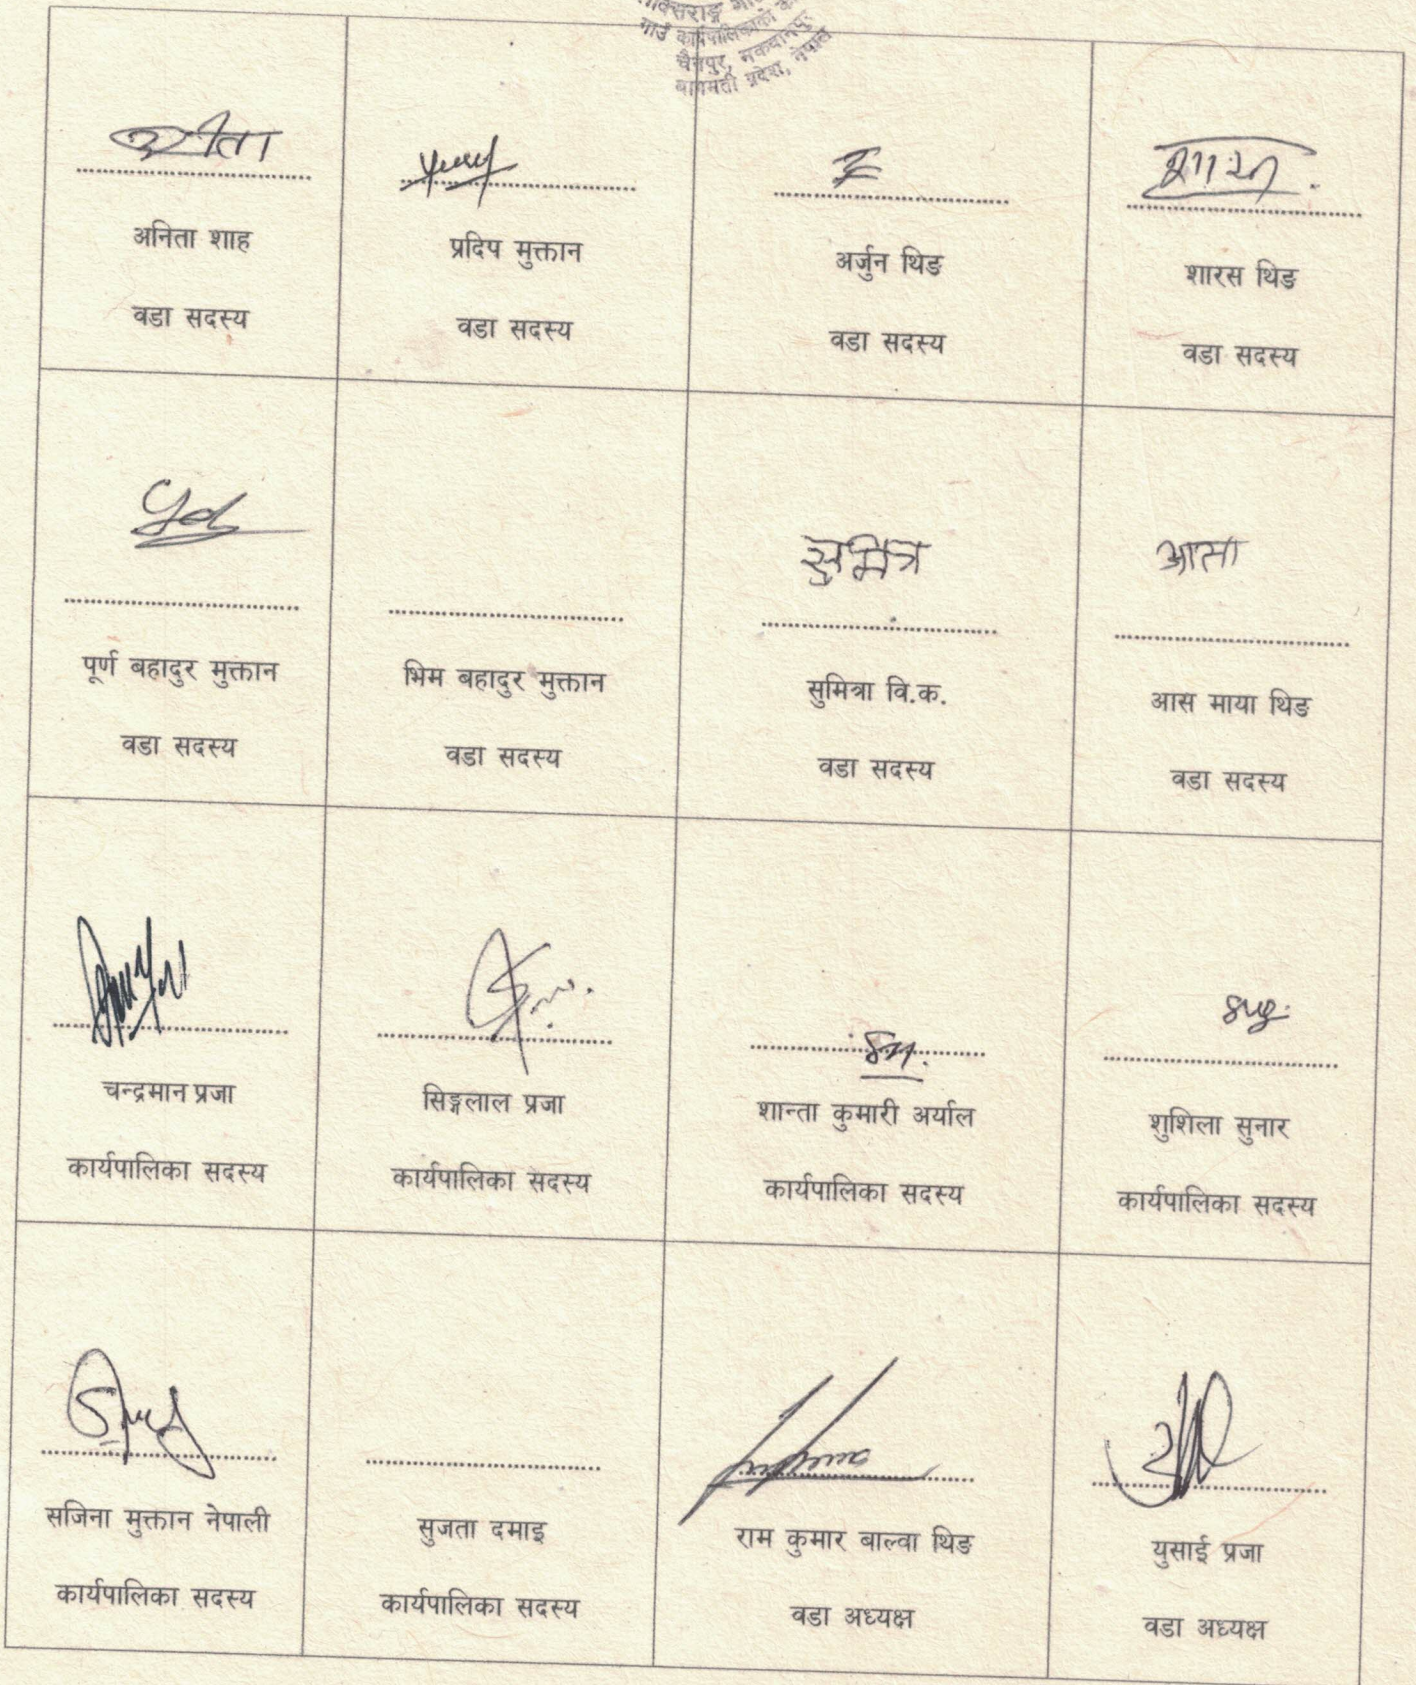 गाउँ कार्यपालिकाको
चैनपुर, मकवानपुर
बागमती प्रदेश, नेपाल
अनिता शाह
वडा सदस्य
प्रदिप मुक्तान
वडा सदस्य
अर्जुन थिङ
वडा सदस्य
शारस
शारस थिङ
वडा सदस्य
पूर्ण बहादुर मुक्तान
वडा सदस्य
भिम बहादुर मुक्तान
वडा सदस्य
सुमित्र
सुमित्रा वि.क.
वडा सदस्य
आसा
आस माया थिङ
वडा सदस्य
चन्द्रमान प्रजा
कार्यपालिका सदस्य
सिङ्गलाल प्रजा
कार्यपालिका सदस्य
शान्ता कुमारी अर्याल
कार्यपालिका सदस्य
शुशिला सुनार
कार्यपालिका सदस्य
सजिना मुक्तान नेपाली
कार्यपालिका सदस्य
सुजता दमाइ
कार्यपालिका सदस्य
राम कुमार बाल्वा थिङ
वडा अध्यक्ष
युसाई प्रजा
वडा अध्यक्ष